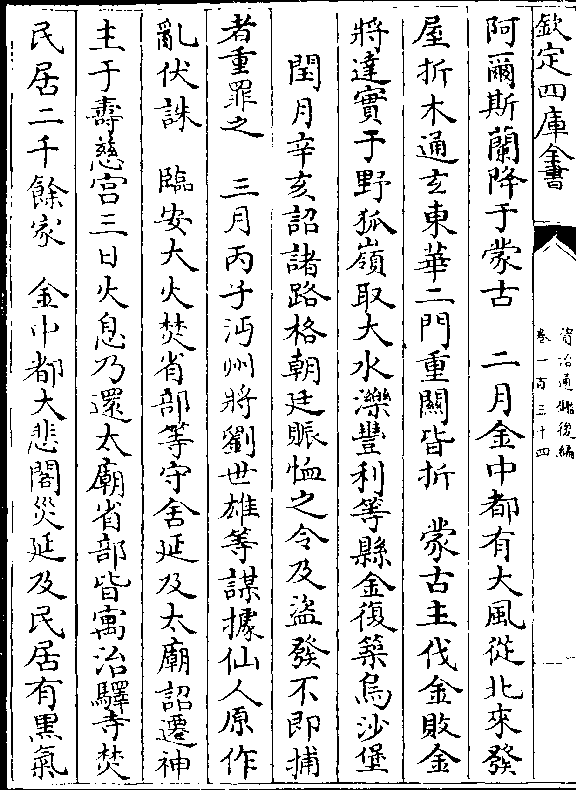 欽定四庫全書
資治通鑑後編
卷一百三十四
阿爾斯蘭降于蒙古　二月金中都有大風從北來發
屋折木通𤣥東華二門重關皆折　蒙古主伐金敗金
將達實于野狐嶺取大水濼豐利等縣金復築烏沙堡
閏月辛亥詔諸路格朝廷賑恤之令及盜發不即捕
者重罪之　三月丙子沔州將劉世雄等謀據仙人原作
亂伏誅　臨安大火焚省部等守舍延及太廟詔遷神
主于壽慈宮三日火息乃還太廟省部皆寓治驛寺焚
民居二千餘家　金中都大悲閣災延及民居有黒氣